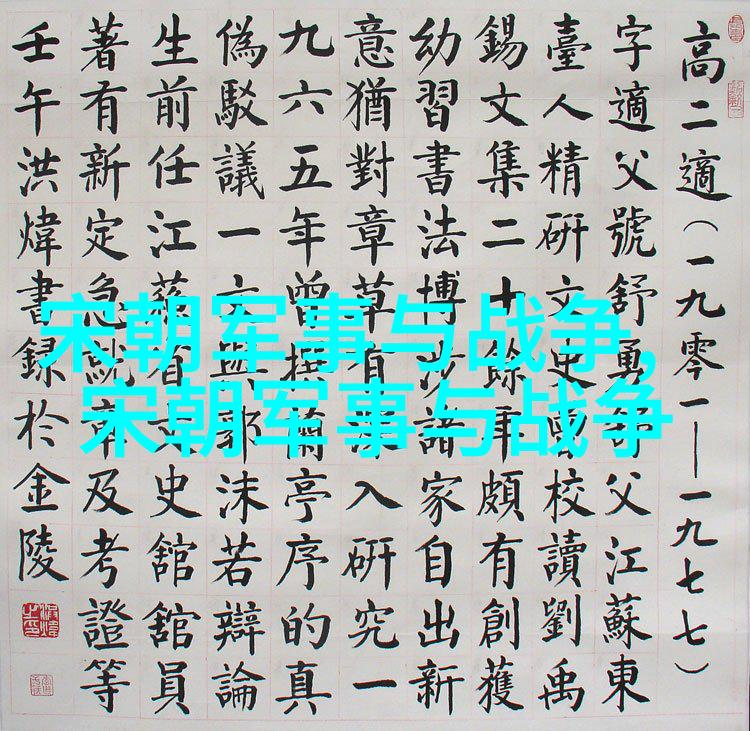 高二適（一九零一—一九七七）
字適父號舒 父江蘇東
臺人精研文史曾校讀劉禹
錫文集二十餘年頗有創獲
幼習書法博涉諸家自出新
意猶對章草有深入研究一
九六五年曾撰蘭亭序的真
偽駁議一文與郭沫若辯論
生前任江蘇省文史舘舘員
著有新定急就章及考證等
壬午洪煒書録於金陵
宋朝军事与战争,
宋朝军事与战争